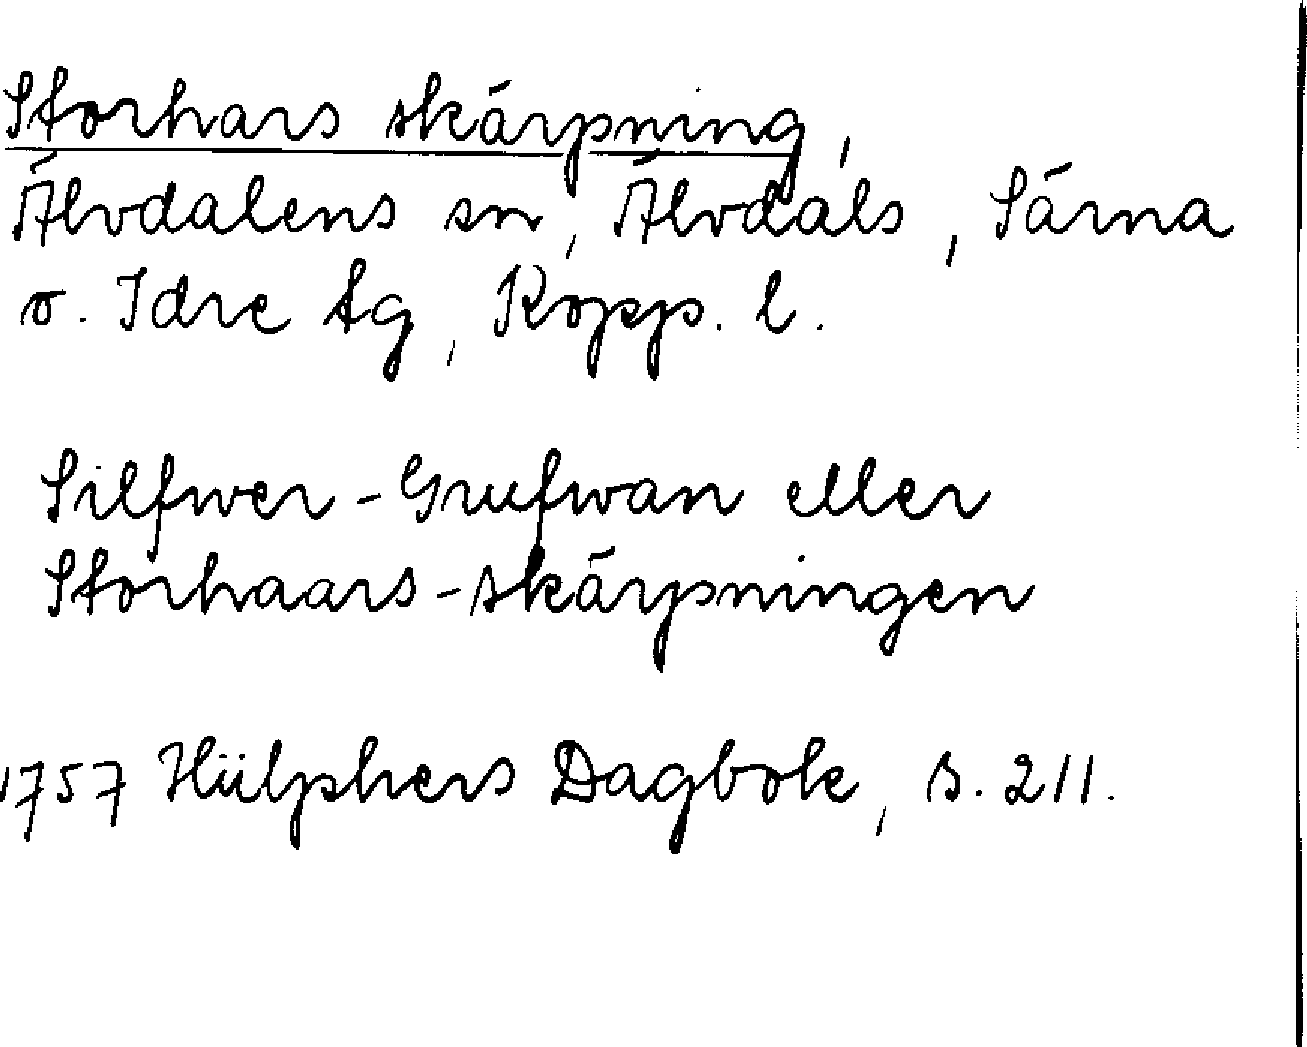 Storhars skärpning,
Älvdalens sn, Älvdals, Särna
o. Idre tg, Kopp. l.
Silfwer-Grufwan eller
Storhaars-skärpningen
1757 Hülphers Dagbok, s. 211.